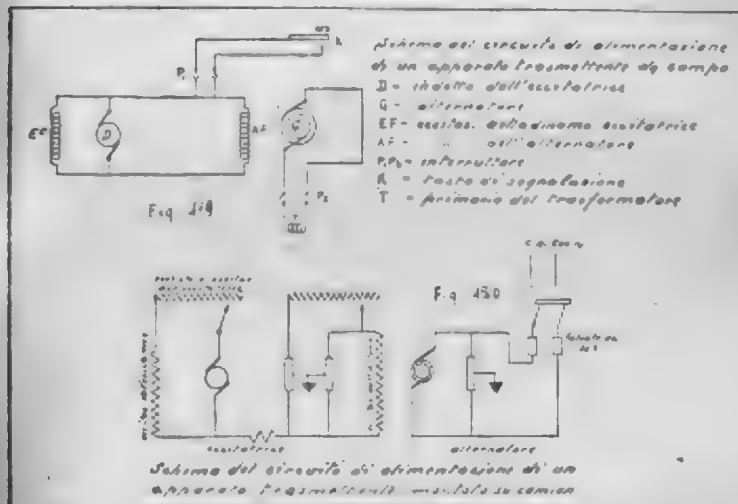 K
P₁
Schema del circuito di alimentazione
di un apparato trasmettente da campo
D = indotto dell'eccitatrice
G = alternatore
EF = eccitaz. della dinamo eccitatrice
AF = " dell'alternatore
P₁P₂ = interruttore
K = tasto di segnalazione
T = primario del trasformatore
D
AF
G
P₂
T
Fig.
Fig. 150
eccitatrice
alternatore
Schema del circuito di alimentazione di un
apparato trasmettente montato su camion